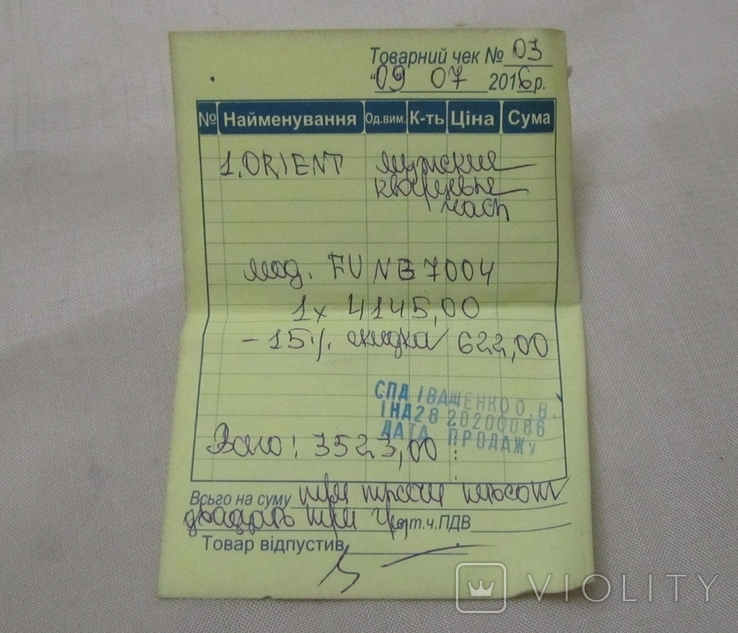 Товарний чек № 03
"09 07 2016р.
№ Найменування Од.вим. К-ть Ціна Сума
1. ORIENT мужские
кварцевые
часы
мод. FUNE7004
1x 4145,00
-15% скидка 622,00
СПД ІВАЩЕНКО О.В.
ІНД 28 20200086
ДАТА ПРОДАЖУ
Всего: 3523,00
Всього на суму три тысячи пятьсот
двадцать три грн т.ч.ПДВ
Товар відпустив
VIOLITY